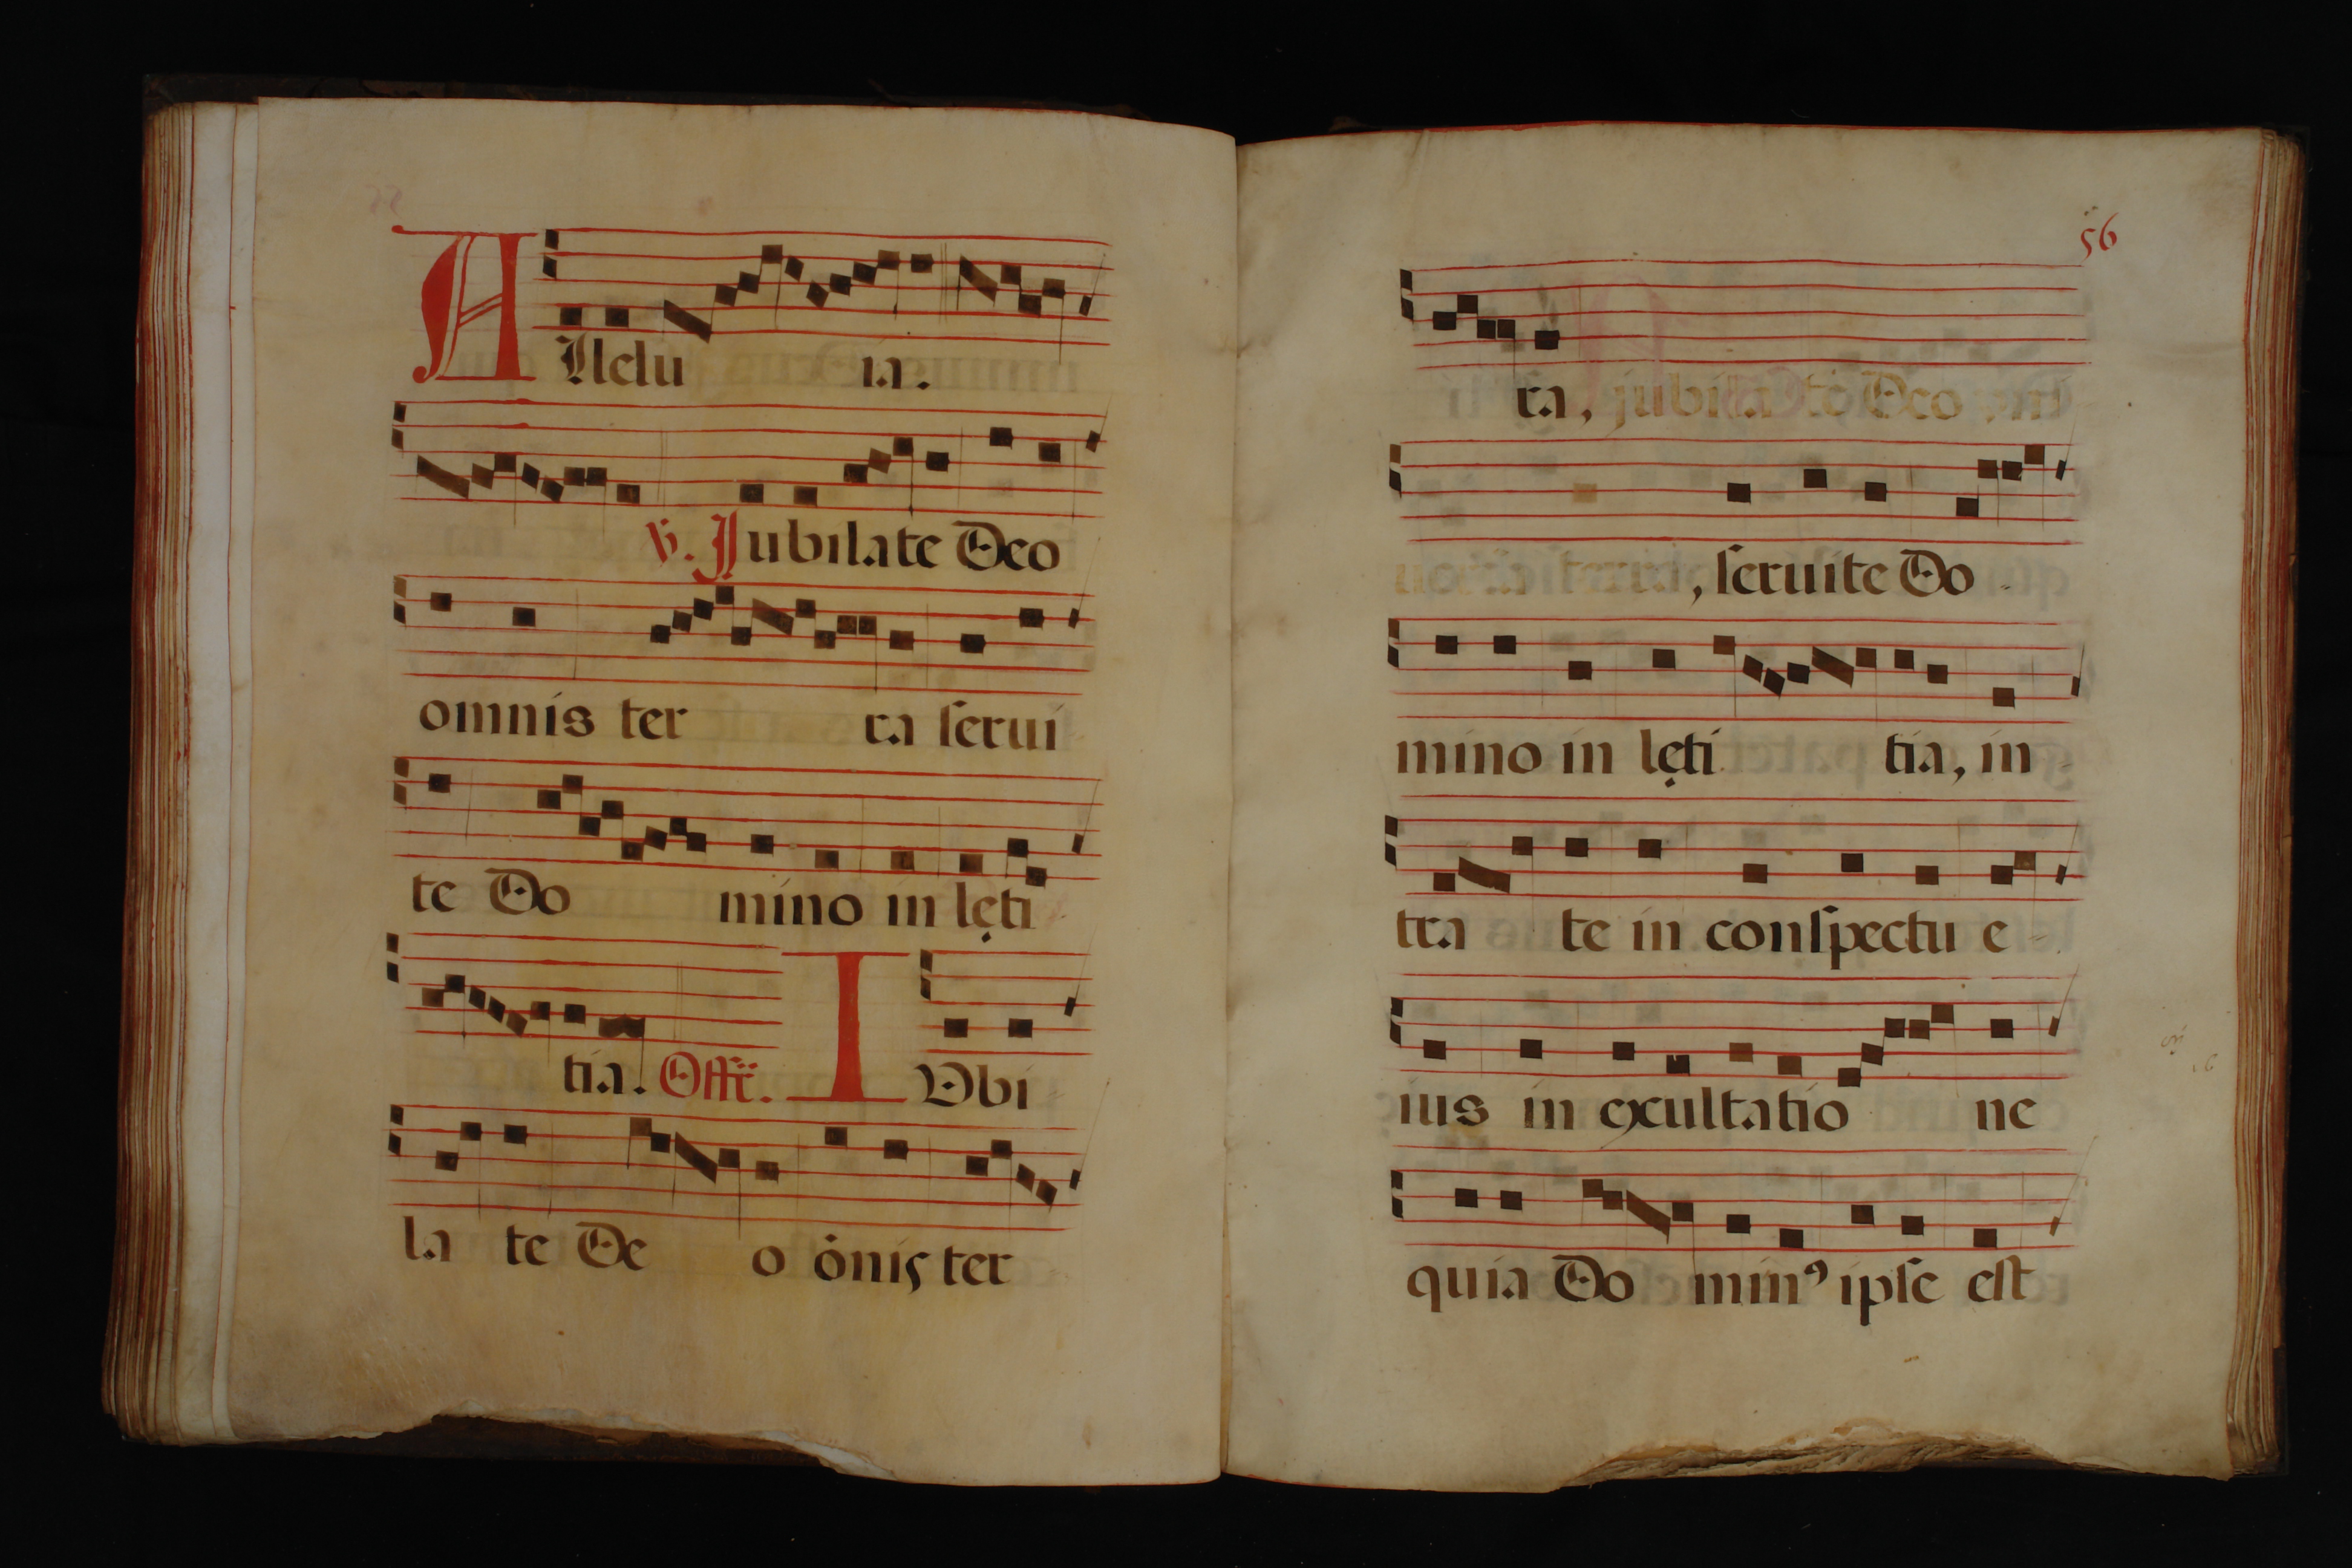 Allelu ia.
℣. Jubilate Deo
omnis ter ra ſerui
te Do mino in lęti
tia. Offr̃. I Vbi
la te De o ōnis ter
56
ra, jubilate Deo uni
uersa terra, ſeruite Do-
mino in lęti tia, in-
tra te in conſpectu e-
ius in exultatio ne
quia Do minꝰ ipſe eſt